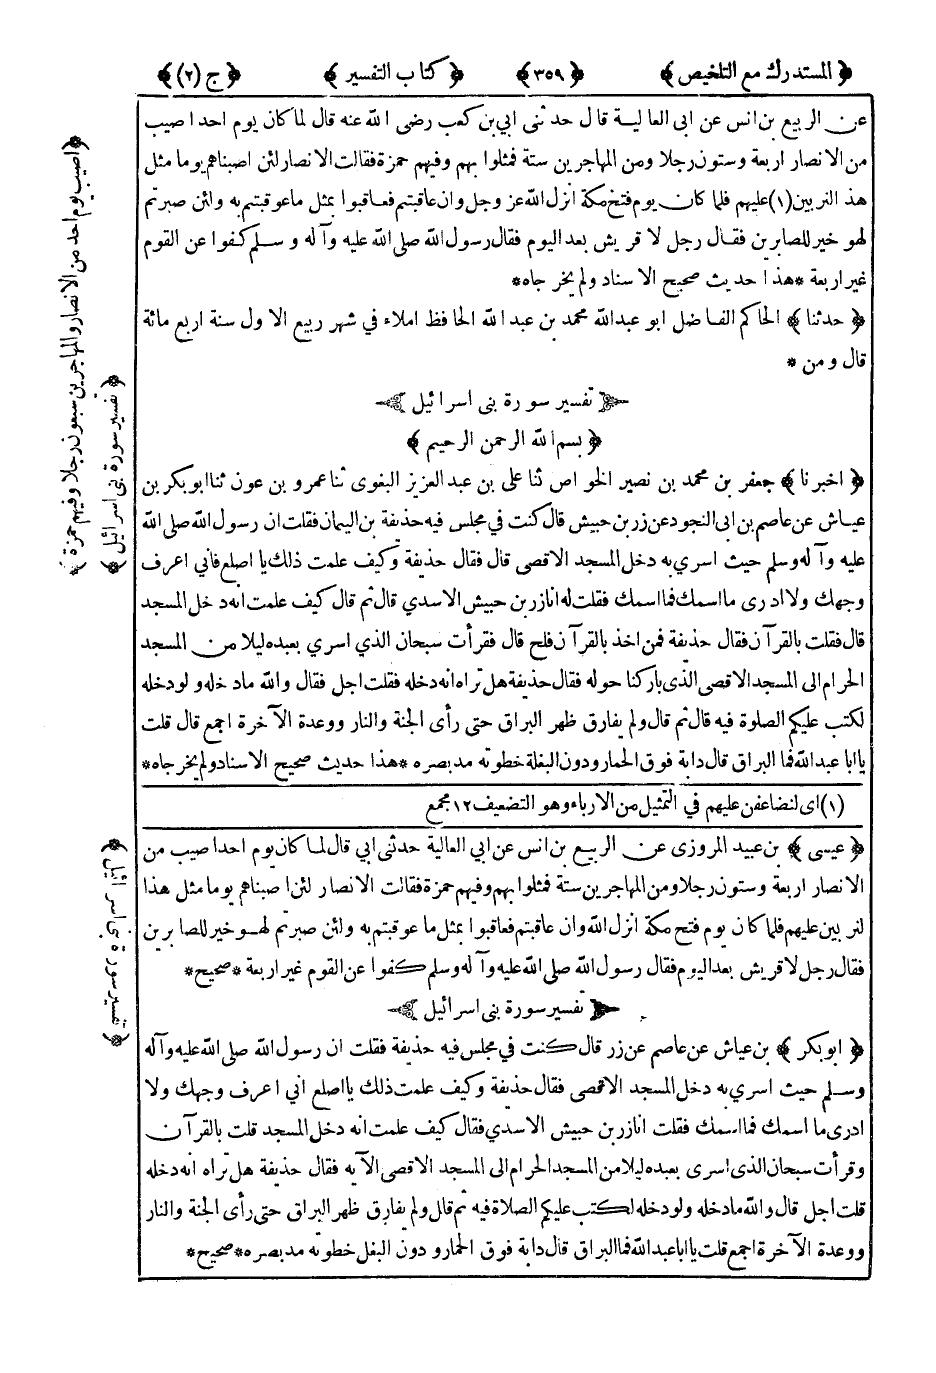 ﴿ المستدرك مع التلخيص ﴾ ﴿ ٣٥٩ ﴾ ﴿ كتاب التفسير ﴾ ﴿ ج (٢) ﴾
عن الربيع بن انس عن ابى العالية قال حدثنى ابي بن كعب رضى الله عنه قال لما كان يوم احد اصيب
من الانصار اربعة وستون رجلا ومن المهاجرين ستة فمثلوا بهم وفيهم حمزة فقالت الانصار لئن اصبناهم يوما مثل
هذا لنربين (١) عليهم فلما كان يوم فتح مكة انزل الله عز وجل وان عاقبتم فعاقبوا بمثل ما عوقبتم به ولئن صبرتم
لهو خير للصابرين فقال رجل لا قريش بعد اليوم فقال رسول الله صلى الله عليه وآله وسلم كفوا عن القوم
غير اربعة * هذا حديث صحيح الاسناد ولم يخرجاه *
﴿ حدثنا ﴾ الحاكم الفاضل ابو عبدالله محمد بن عبد الله الحافظ املاء في شهر ربيع الاول سنة اربع مائة
قال ومن *
تفسير سورة بنى اسرائيل
﴿ بسم الله الرحمن الرحيم ﴾
﴿ اخبرنا ﴾ جعفر بن محمد بن نصير الخواص ثنا على بن عبد العزيز البغوى ثنا عمرو بن عون ثنا ابو بكر بن
عياش عن عاصم بن ابى النجود عن زر بن حبيش قال كنت في مجلس فيه حذيفة بن اليمان فقلت ان رسول الله صلى الله
عليه وآله وسلم حيث اسري به دخل المسجد الاقصى قال فقال حذيفة وكيف علمت ذلك يا اصلع فاني اعرف
وجهك ولا ادرى ما اسمك فما اسمك فقلت له انا زر بن حبيش الاسدي قال ثم قال كيف علمت انه دخل المسجد
قال فقلت بالقرآن فقال حذيفة فمن اخذ بالقرآن فلح قال فقرأت سبحان الذي اسري بعبده ليلا من المسجد
الحرام الى المسجد الاقصى الذى باركنا حوله فقال حذيفة هل تراه انه دخله فقلت اجل فقال والله ما دخله ولو دخله
لكتب عليكم الصلوة فيه قال ثم قال ولم يفارق ظهر البراق حتى رأى الجنة والنار ووعدة الآخرة اجمع قال قلت
يا ابا عبد الله فما البراق قال دابة فوق الحمار ودون البغلة خطوته مد بصره * هذا حديث صحيح الاسناد ولم يخرجاه *
(١) اى لنضاعفن عليهم في التمثيل من الارباء وهو التضعيف ١٢ مجمع
﴿ عيسى ﴾ بن عبيد المروزى عن الربيع بن انس عن ابي العالية حدثى ابي قال لما كان يوم احد اصيب من
الانصار اربعة وستون رجلا ومن المهاجرين ستة فمثلوا بهم وفيهم حمزة فقالت الانصار لئن اصبناهم يوما مثل هذا
لنربين عليهم فلما كان يوم فتح مكة انزل الله وان عاقبتم فعاقبوا بمثل ما عوقبتم به ولئن صبرتم لهو خير للصابرين
فقال رجل لا قريش بعد اليوم فقال رسول الله صلى الله عليه وآله وسلم كفوا عن القوم غير اربعة * صحيح *
تفسير سورة بنى اسرائيل
﴿ ابو بكر ﴾ بن عياش عن عاصم عن زر قال كنت في مجلس فيه حذيفة فقلت ان رسول الله صلى الله عليه وآله
وسلم حيث اسري به دخل المسجد الاقصى فقال حذيفة وكيف علمت ذلك يا اصلع اني اعرف وجهك ولا
ادرى ما اسمك فما اسمك فقلت انا زر بن حبيش الاسدي فقال كيف علمت انه دخل المسجد قلت بالقرآن
وقرأت سبحان الذى اسرى بعبده ليلا من المسجد الحرام الى المسجد الاقصى الآيه فقال حذيفة هل تراه انه دخله
قلت اجل قال والله ما دخله ولو دخله لكتب عليكم الصلاة فيه ثم قال ولم يفارق ظهر البراق حتى رأى الجنة والنار
ووعدة الآخرة اجمع قلت يا ابا عبد الله فما البراق قال دابة فوق الحمار و دون البغل خطوته مد بصره * صحيح *
﴿ اصيب يوم احد من الانصار والمهاجرين سبعون رجلا وفيهم حمزة ﴾
﴿ تفسير سورة بنى اسرائيل ﴾
﴿ تفسير سورة بنى اسرائيل ﴾